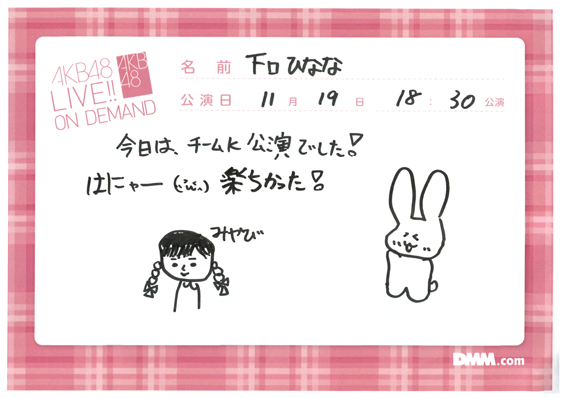 AKB48
LIVE!!
ON DEMAND
AKB
48
名前 下口ひなな
公演日 11月 19日 18:30公演
今日は、チームK公演でした!
はにゃー 楽ちかった!
みやび
DMM.com